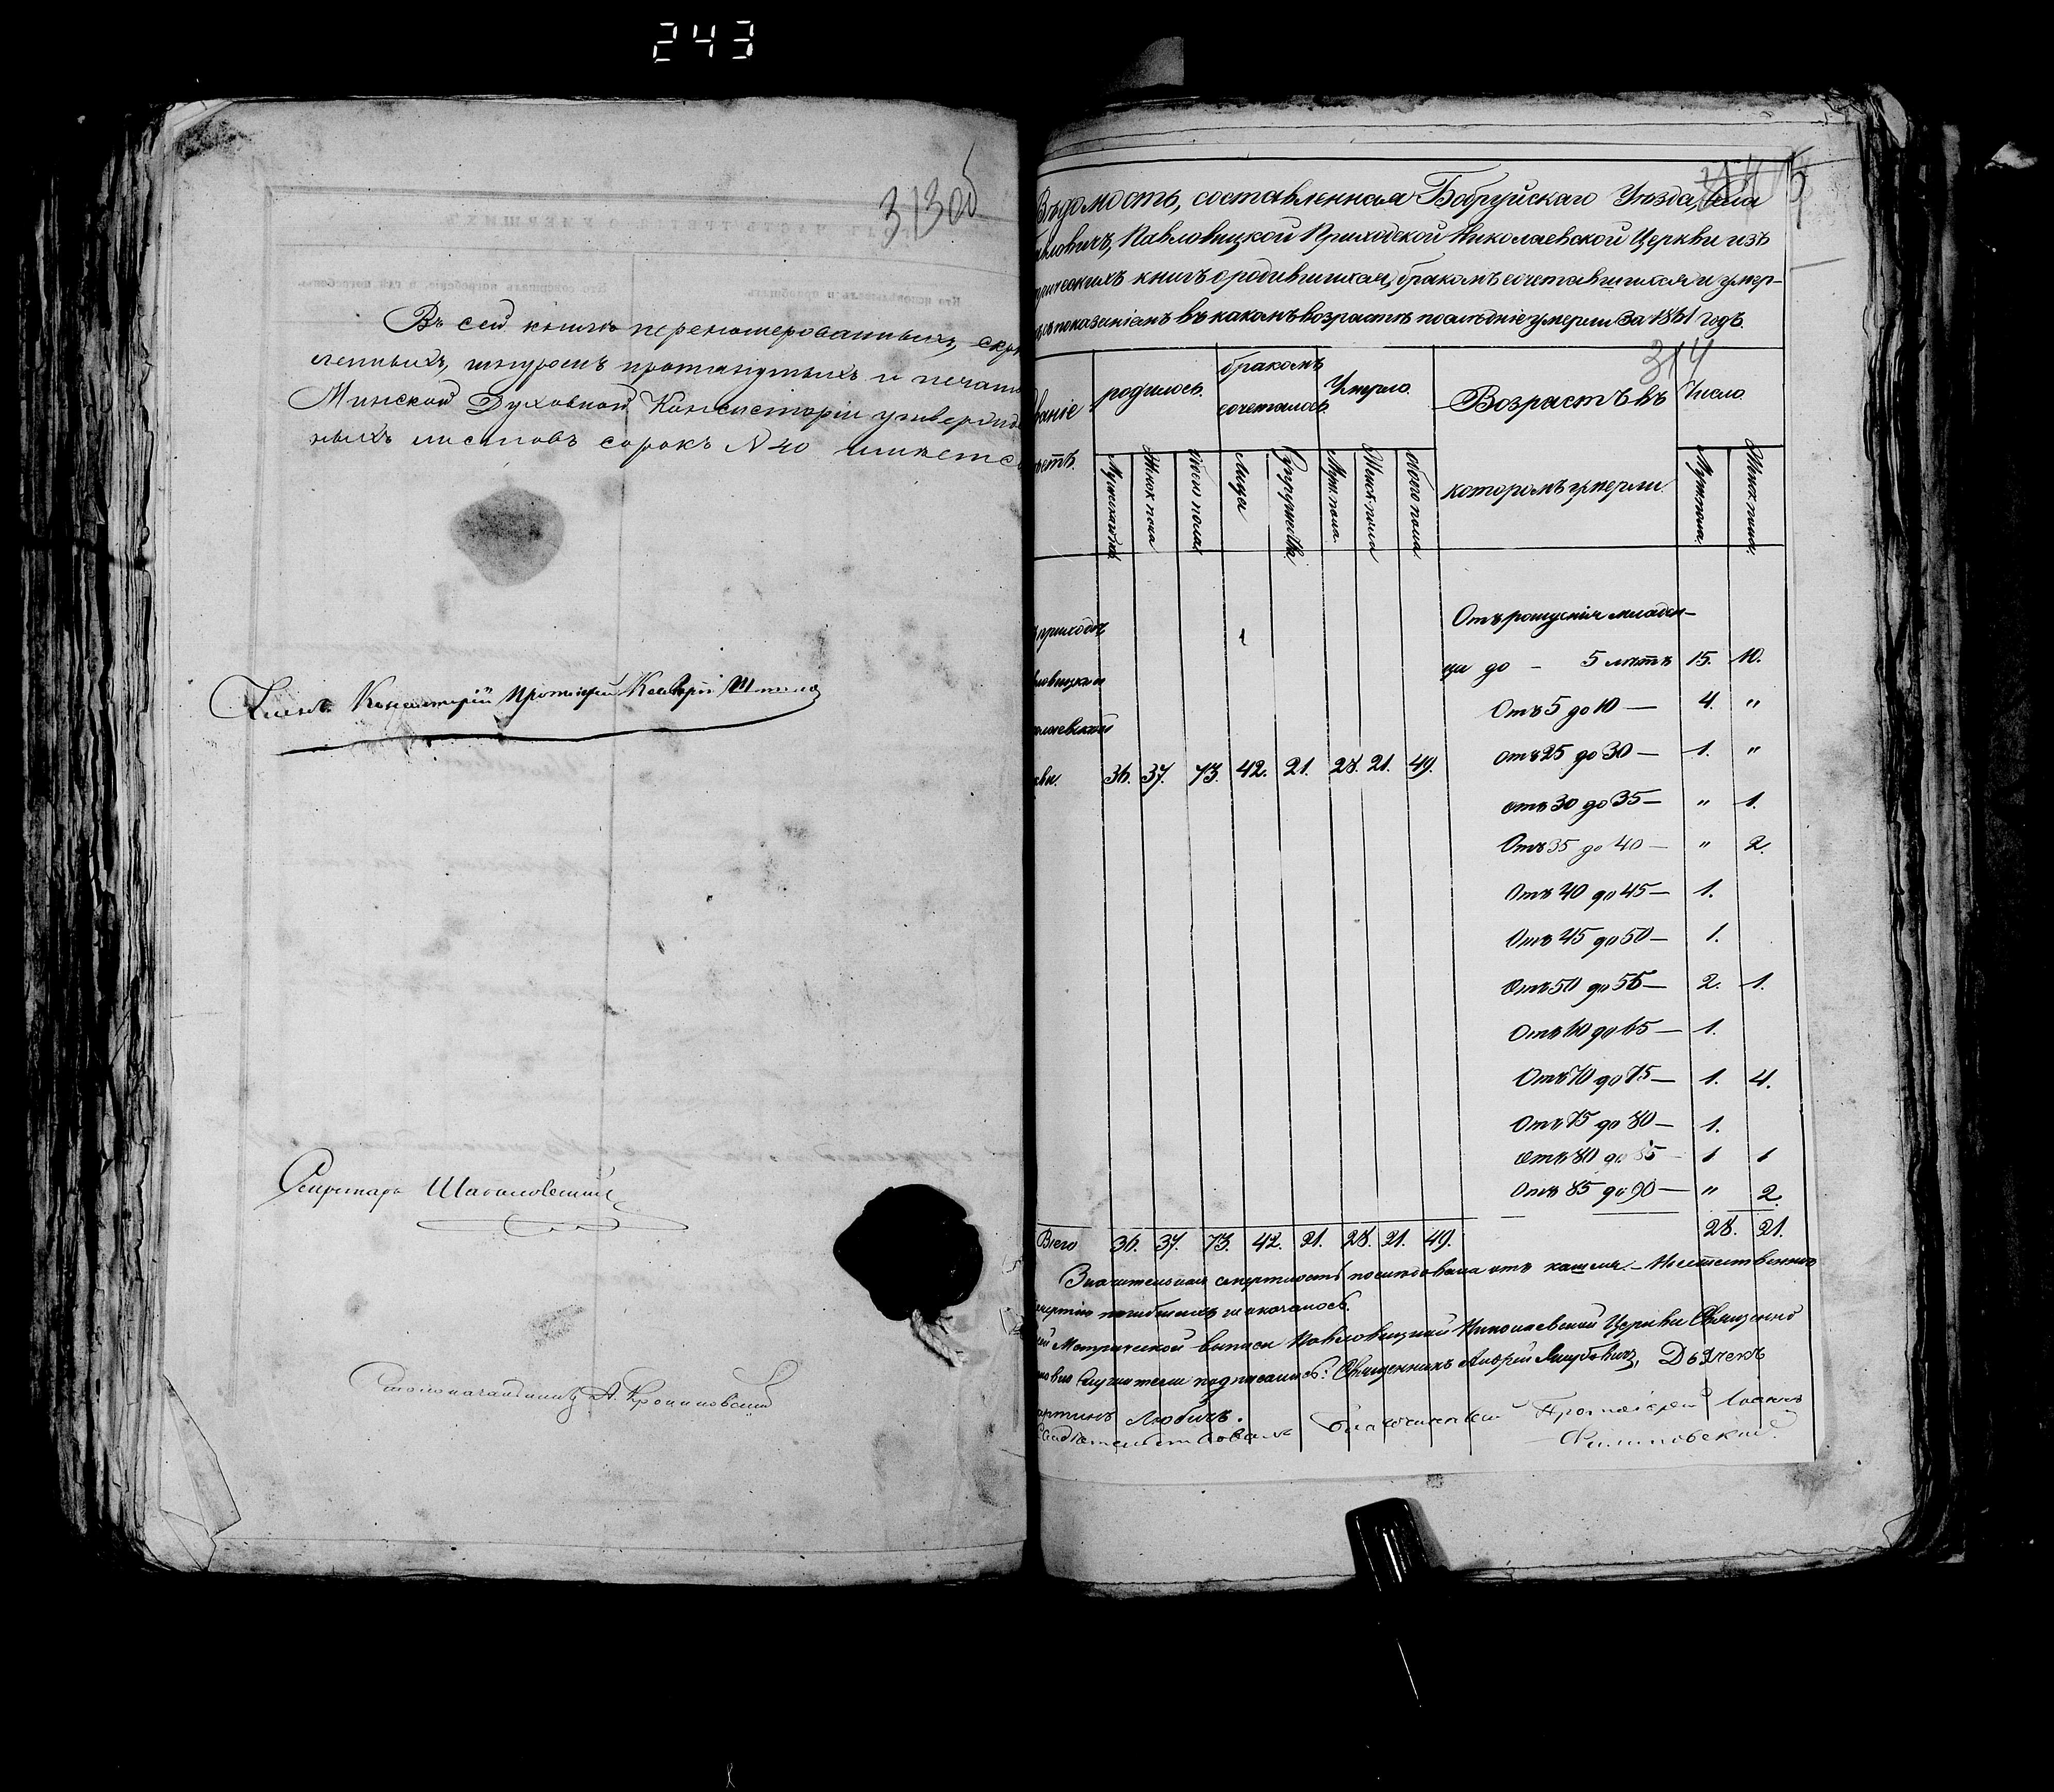 243
313об
Въ сей книгѣ перенумерованныхъ, скрѣ
пленныхъ, шнуромъ протянутыхъ и печатью
Минской Духовной Консисторіи утвержден
ныхъ листовъ сорокъ N 40 имѣется
Членъ Консисторіи Протоіерей
Секретарь
Столоначальникъ А.
Вѣдомость, составленная Бобруйскаго Уѣзда, села
Павловицкой Приходской Николаевской Церкви изъ
книгъ о родившихся, бракомъ сочетавшихся и умер-
показаніемъ въ какомъ возрастѣ послѣдніе умерли за 1861 годъ.
314
родилось бракомъ сочеталось Умерло Возрастъ въ которомъ умерли Число
Мужескаго Женск. пола обоего пола Лица Супружества Муж. пола Женск. пола обоего пола Муж. пола Женск. пола
приходѣ
Отъ рожденія младен-
ца до - 5 лѣтъ 15. 10.
Отъ 5 до 10 — 4. "
Отъ 25 до 30 — 1. "
36. 37. 73. 42. 21. 28. 21. 49.
отъ 30 до 35 — " 1.
Отъ 35 до 40 — " 2.
Отъ 40 до 45 — 1.
Отъ 45 до 50 — 1.
Отъ 50 до 55 — 2. 1.
Отъ 60 до 65 — 1.
Отъ 70 до 75 — 1. 4.
Отъ 75 до 80 — 1.
Отъ 80 до 85 1 1
Отъ 85 до 90 — " 2.
Всего 36. 37. 73. 42. 21. 28. 21. 49. 28. 21.
Значительная смертность послѣдовала отъ кашля. — Неестественною
смертію погибшихъ не оказалось.
Метрической выписи Павловицкой Николаевской Церкви Священно
служители подписались: Священникъ Андрей Якубовичъ, Дьячекъ
Мартинъ Любичъ.
Свидѣтельствовалъ Благочинный Протоіерей Іоаннъ